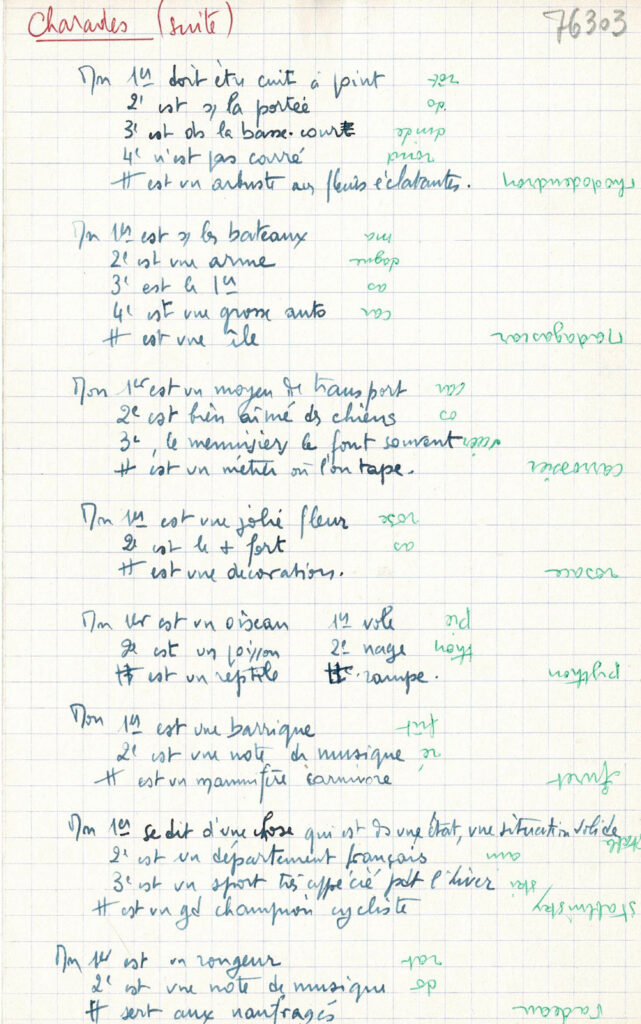 Charades (suite) 76303
Mon 1er doit être cuit à point rôt
2e est s/ la portée do
3e est ds la basse-cour dinde
4e n'est pas carré rond
# est un arbuste aux fleurs éclatantes. rhododendron
Mn 1er est s/ les bateaux ma
2e est une arme dague
3e est le 1er as
4e est une grosse auto car
# est une île Madagascar
Mon 1er est un moyen de transport car
2e est bien aimé des chiens os
3e, le menuisiers le font souvent scier
# est un métier où l'on tape. carrossier
Mn 1er est une jolie fleur rose
2e est le + fort as
# est une décorations. rosace
Mn 1er est un oiseau 1er vole pie
2e est un poisson 2e nage thon
# est un reptile #. rampe. python
Mon 1er est une barrique fût
2e est une note de musique ré
# est un mammifère carnivore furet
Mn 1er se dit d'une chose qui est ds une état, une situation solide stable
2e est un département français ain
3e est un sport très appécié pdt l'hiver ski
# est un gd champion cycliste stablinsky
Mn 1er est un rongeur rat
2e est une note de musique do
# sert aux naufragés radeau